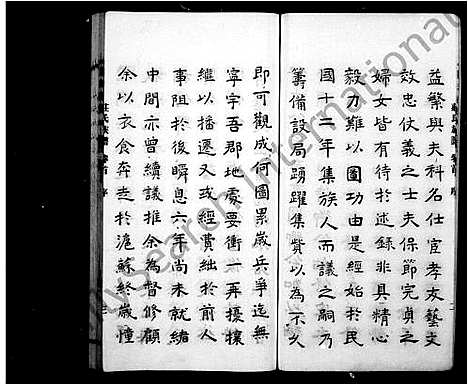 益繁與夫科名仕宦孝友藝文
效忠仗義之士夫保節完貞之
婦女皆有待於述錄非具精心
毅力難以圖功由是經始於民
國十二年集族人而議之嗣乃
籌備設局踴躍集貲以為不久
即可觀成何圖累歲兵爭迄無
寧宇吾郡地處要衝一再擾攘
繼以播遷又政經費絀於前人
事阻於後瞬息六年尚未就緒
中間亦曾續議推余為督修顧
余以衣食奔走於滬蘇終歲憧
莊氏族譜 卷首 序
MySearch International